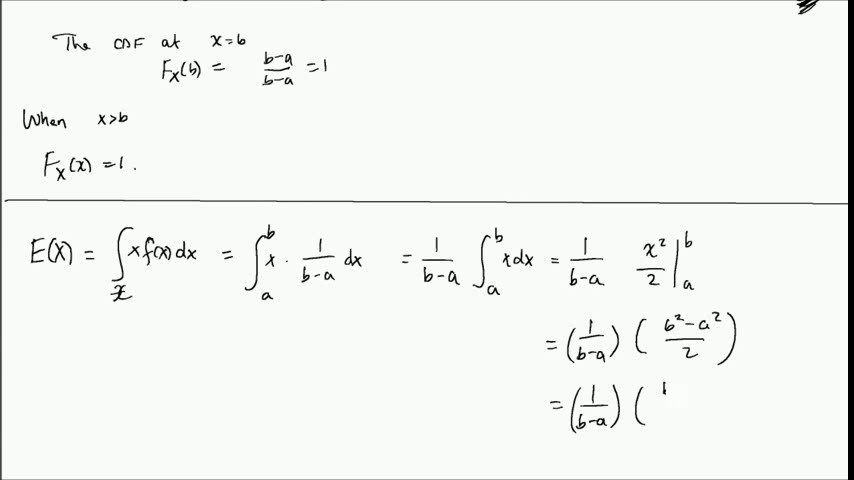 The CDF at x=b
F_X(b) = \frac{b-a}{b-a} = 1
When x>b
F_X(x) = 1.
E(X) = \int_x x f(x) dx = \int_a^b x \cdot \frac{1}{b-a} dx = \frac{1}{b-a} \int_a^b x dx = \frac{1}{b-a} \frac{x^2}{2} |_a^b
= (\frac{1}{b-a}) ( \frac{b^2-a^2}{2} )
= (\frac{1}{b-a}) (